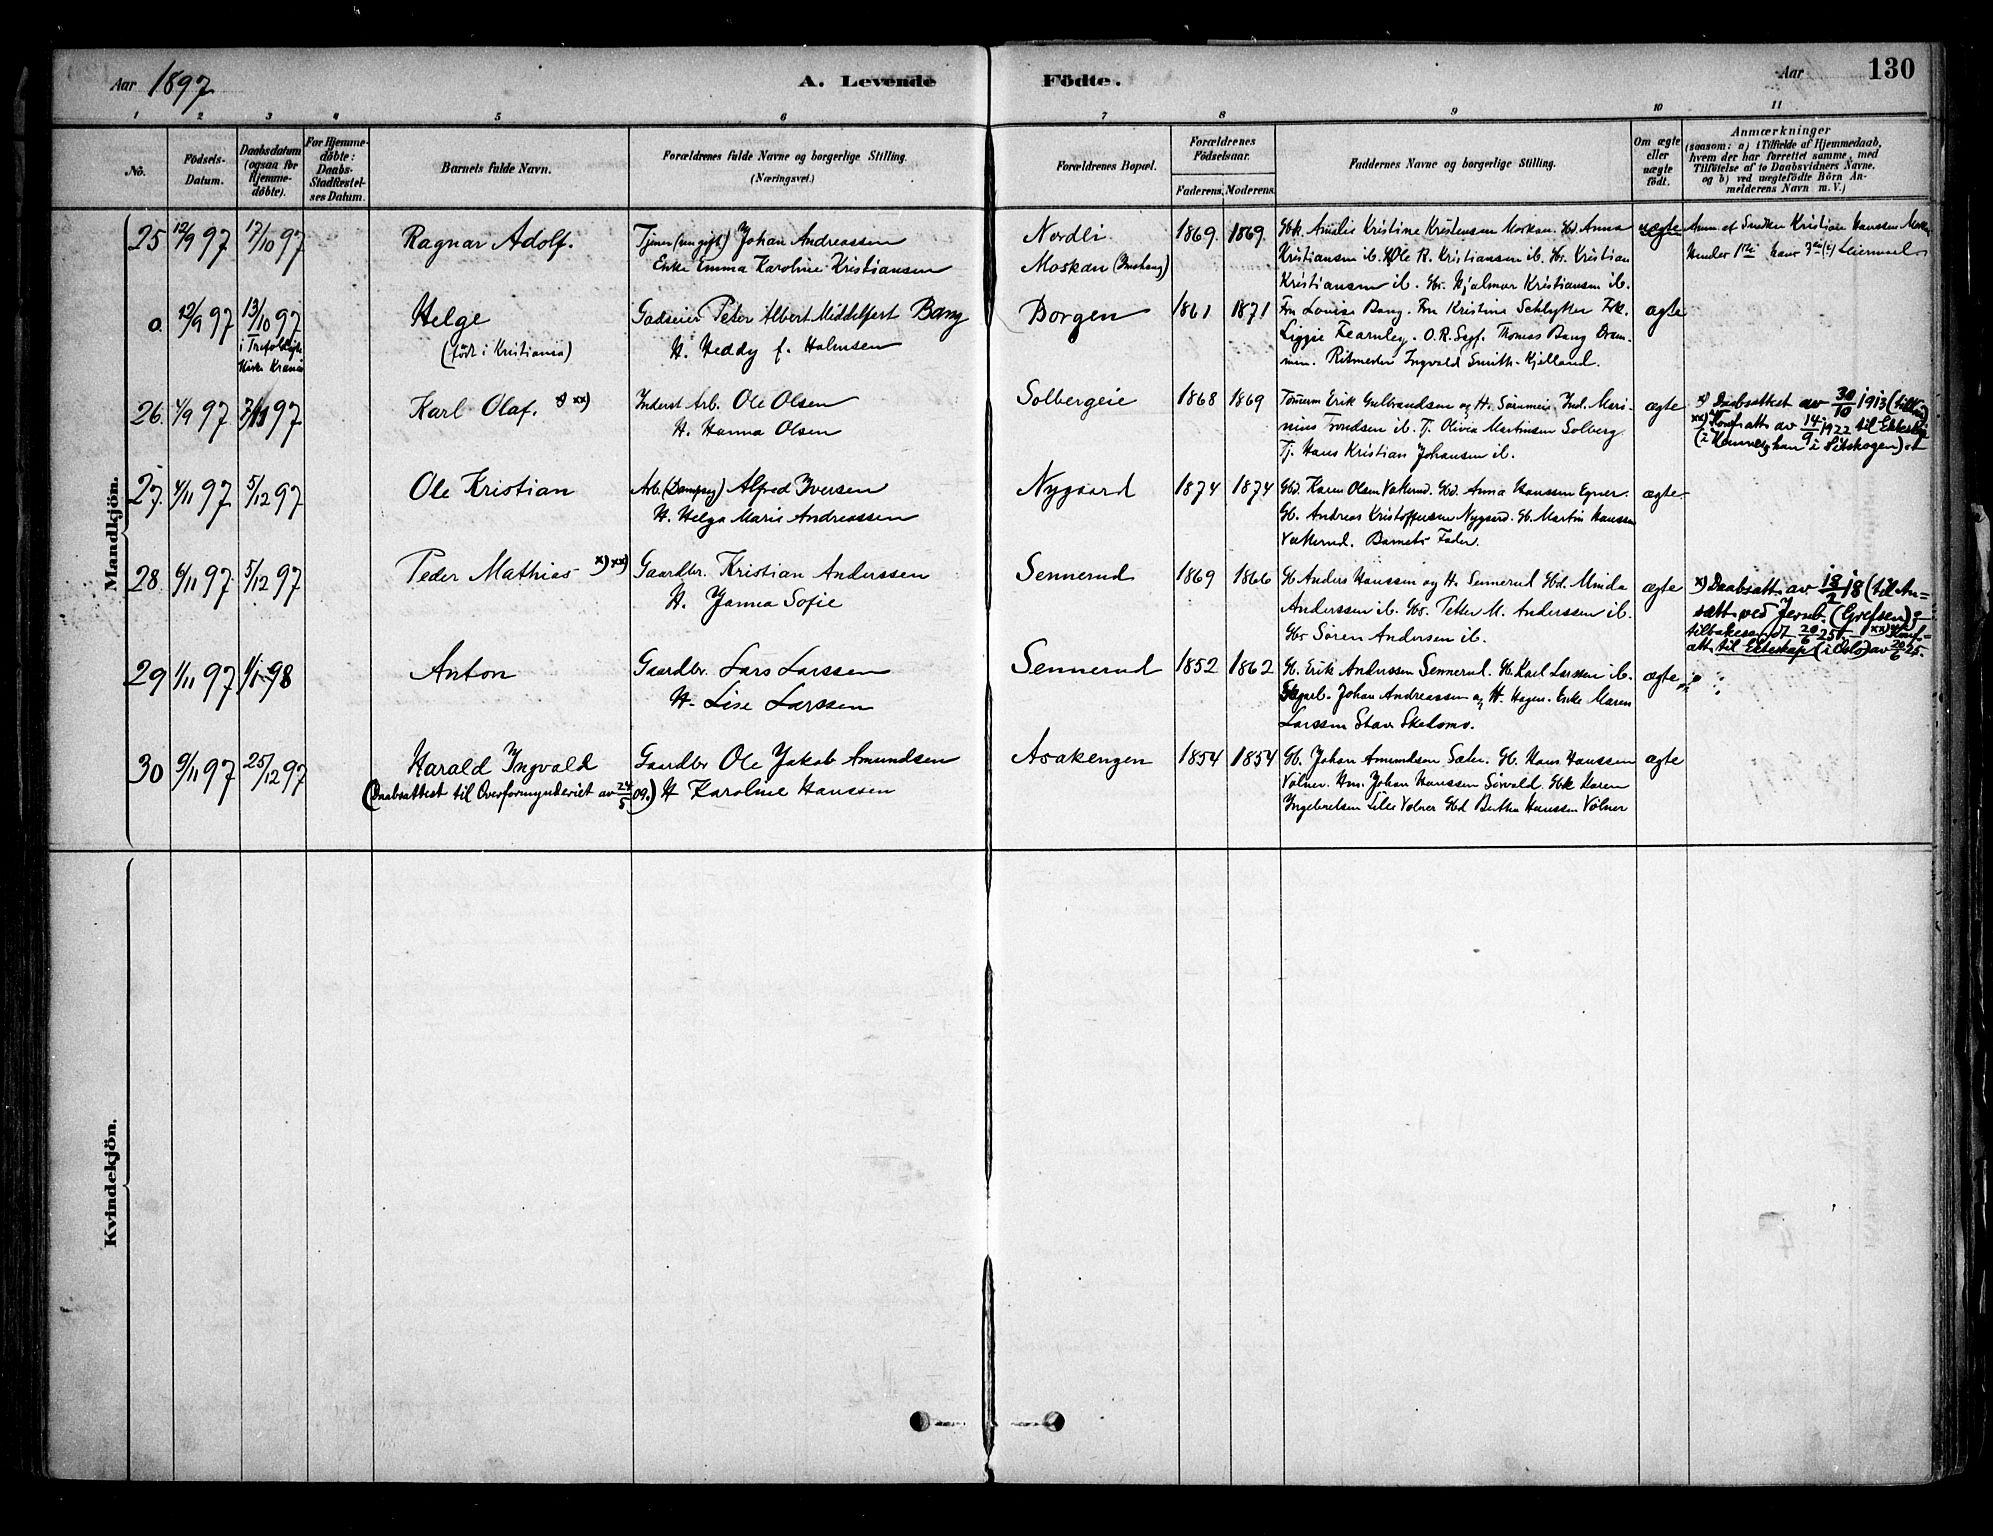 Aar 1897
A. Levende
Födte.
Aar
130
1 2 3 4 5 6 7 8 9 10 11
No.
Födsels-
Datum.
Daabsdatum
(ogsaa for
Hjemme-
döbte).
For Hjemme-
döbte:
Daabs-
Stadfæstel-
ses Datum.
Barnets fulde Navn.
Forældrenes fulde Navne og borgerlige Stilling.
(Næringsvei.)
Forældrenes Bopæl.
Forældrenes
Födselsaar.
Faderens. Moderens.
Faddernes Navne og borgerlige Stilling.
Om ægte
eller
uægte
födt.
Anmærkninger
(saasom: a) i Tilfælde af Hjemmedaab,
hvem der har forrettet samme, med
Tilföielse af to Daabsvidners Navne,
og b) ved uægtefödte Börn An-
melderens Navn m. V.)
Mandkjön.
25 12/9 97 17/10 97 Ragnar Adolf.
Tjener (ungift) Johan Andreassen
Enke Emma Karoline Kristiansen
Nordli
Moskau
1869. 1869.
Gbk. Amalie Kristine Kristensen Moskau. Gd. Anna
Kristiansen ib. Ole R. Kristiansen ib. Gs. Kristian
Kristiansen ib. Gs. Hjalmar Kristiansen ib.
uægte
Anm. af Snedker Kristian Hanssen
Hendes 1ste hans 3die Leiermaal
o. 12/9 97 13/10 97
i Trefoldigh.
Kirke Krania
Helge
(född i Kristiania)
Godseier Peter Albert Middelfart Bang
H. Heddy f. Holmsen
Borgen
1861 1871
Fru Louise Bang. Fru Kristine Schlytter Frk.
Liggie Fearnley. O.R.Sagf. Thomas Bang Dram-
men. Ritmester Ingvald Smith-Kjelland.
ægte
26. 4/9 97 97 Karl Olaf. x) xx)
Inderst Arb. Ole Olsen
H. Hanna Olsen
Solbergeie
1868 1869
Tömm. Erik Gulbrandsen og H. Sörumeie. Ind. Mari-
nius Trondsen ib. Tj. Olivia Martinsen Solberg
Tj. Hans Kristian Johansen ib.
ægte
x) Daabsattest av 30/10 1913
xx) att. av 14/9 1922 til Ekteskap
han i Siksskogen)
27. 4/11 97 5/12 97 Ole Kristian
Arb. (Dampsag) Alfred Iversen
H. Helga Marie Andreassen
Nygaard
1874 1874
Gbd. Karen Olsen Vakerud. Gbd. Anna Hanssen Egner.
Gb. Andreas Kristoffersen Nygaard. Gb. Martin Hanssen
Vakerud. Barnets Fader.
ægte
28. 6/11 97 5/12 97 Peder Mathias x) xx)
Gaardbr. Kristian Anderssen
H. Janna Sofie
Sennerud
1869 1866
Gb. Anders Hanssen og H. Sennerud Gbd. Minda
Anderssen ib. Gbs. Petter M. Anderssen ib.
Gbs Sören Andersen ib.
ægte
x) Daabsatt. av 18/2 18 (til An=
sætt. ved Jernb. (Grefsen)
tilbakesendt 20/6 25 xx) Konf-
att. til Ekteskap (i Oslo) av 20/6 25.
29 1/11 97 1/1 98 Anton
Gaardbr. Lars Larssen
H. Lise Larssen
Sennerud
1852 1862
Gb. Erik Anderssen Sennerud. Gb. Karl Larssen ib.
Johan Andreassen og H. Hagen. Enke Maren
Larssen Stav Skedsmo.
ægte
30 9/11 97 25/12 97 Harald Ingvald
(Daabsattest til Overformynderiet av 24/5 09.)
Gaardbr Ole Jakob Amundsen
H Karoline Hanssen
Asakengen
1854 1854
Gb. Johan Amundsen Sæter. Gb. Hans Hanssen
Völner. Hm. Johan Hanssen Sörvald. Gbk Karen
Ingebretsen Lille Völner Gbd Berthe Hanssen Völner
ægte
Kvindekjön.